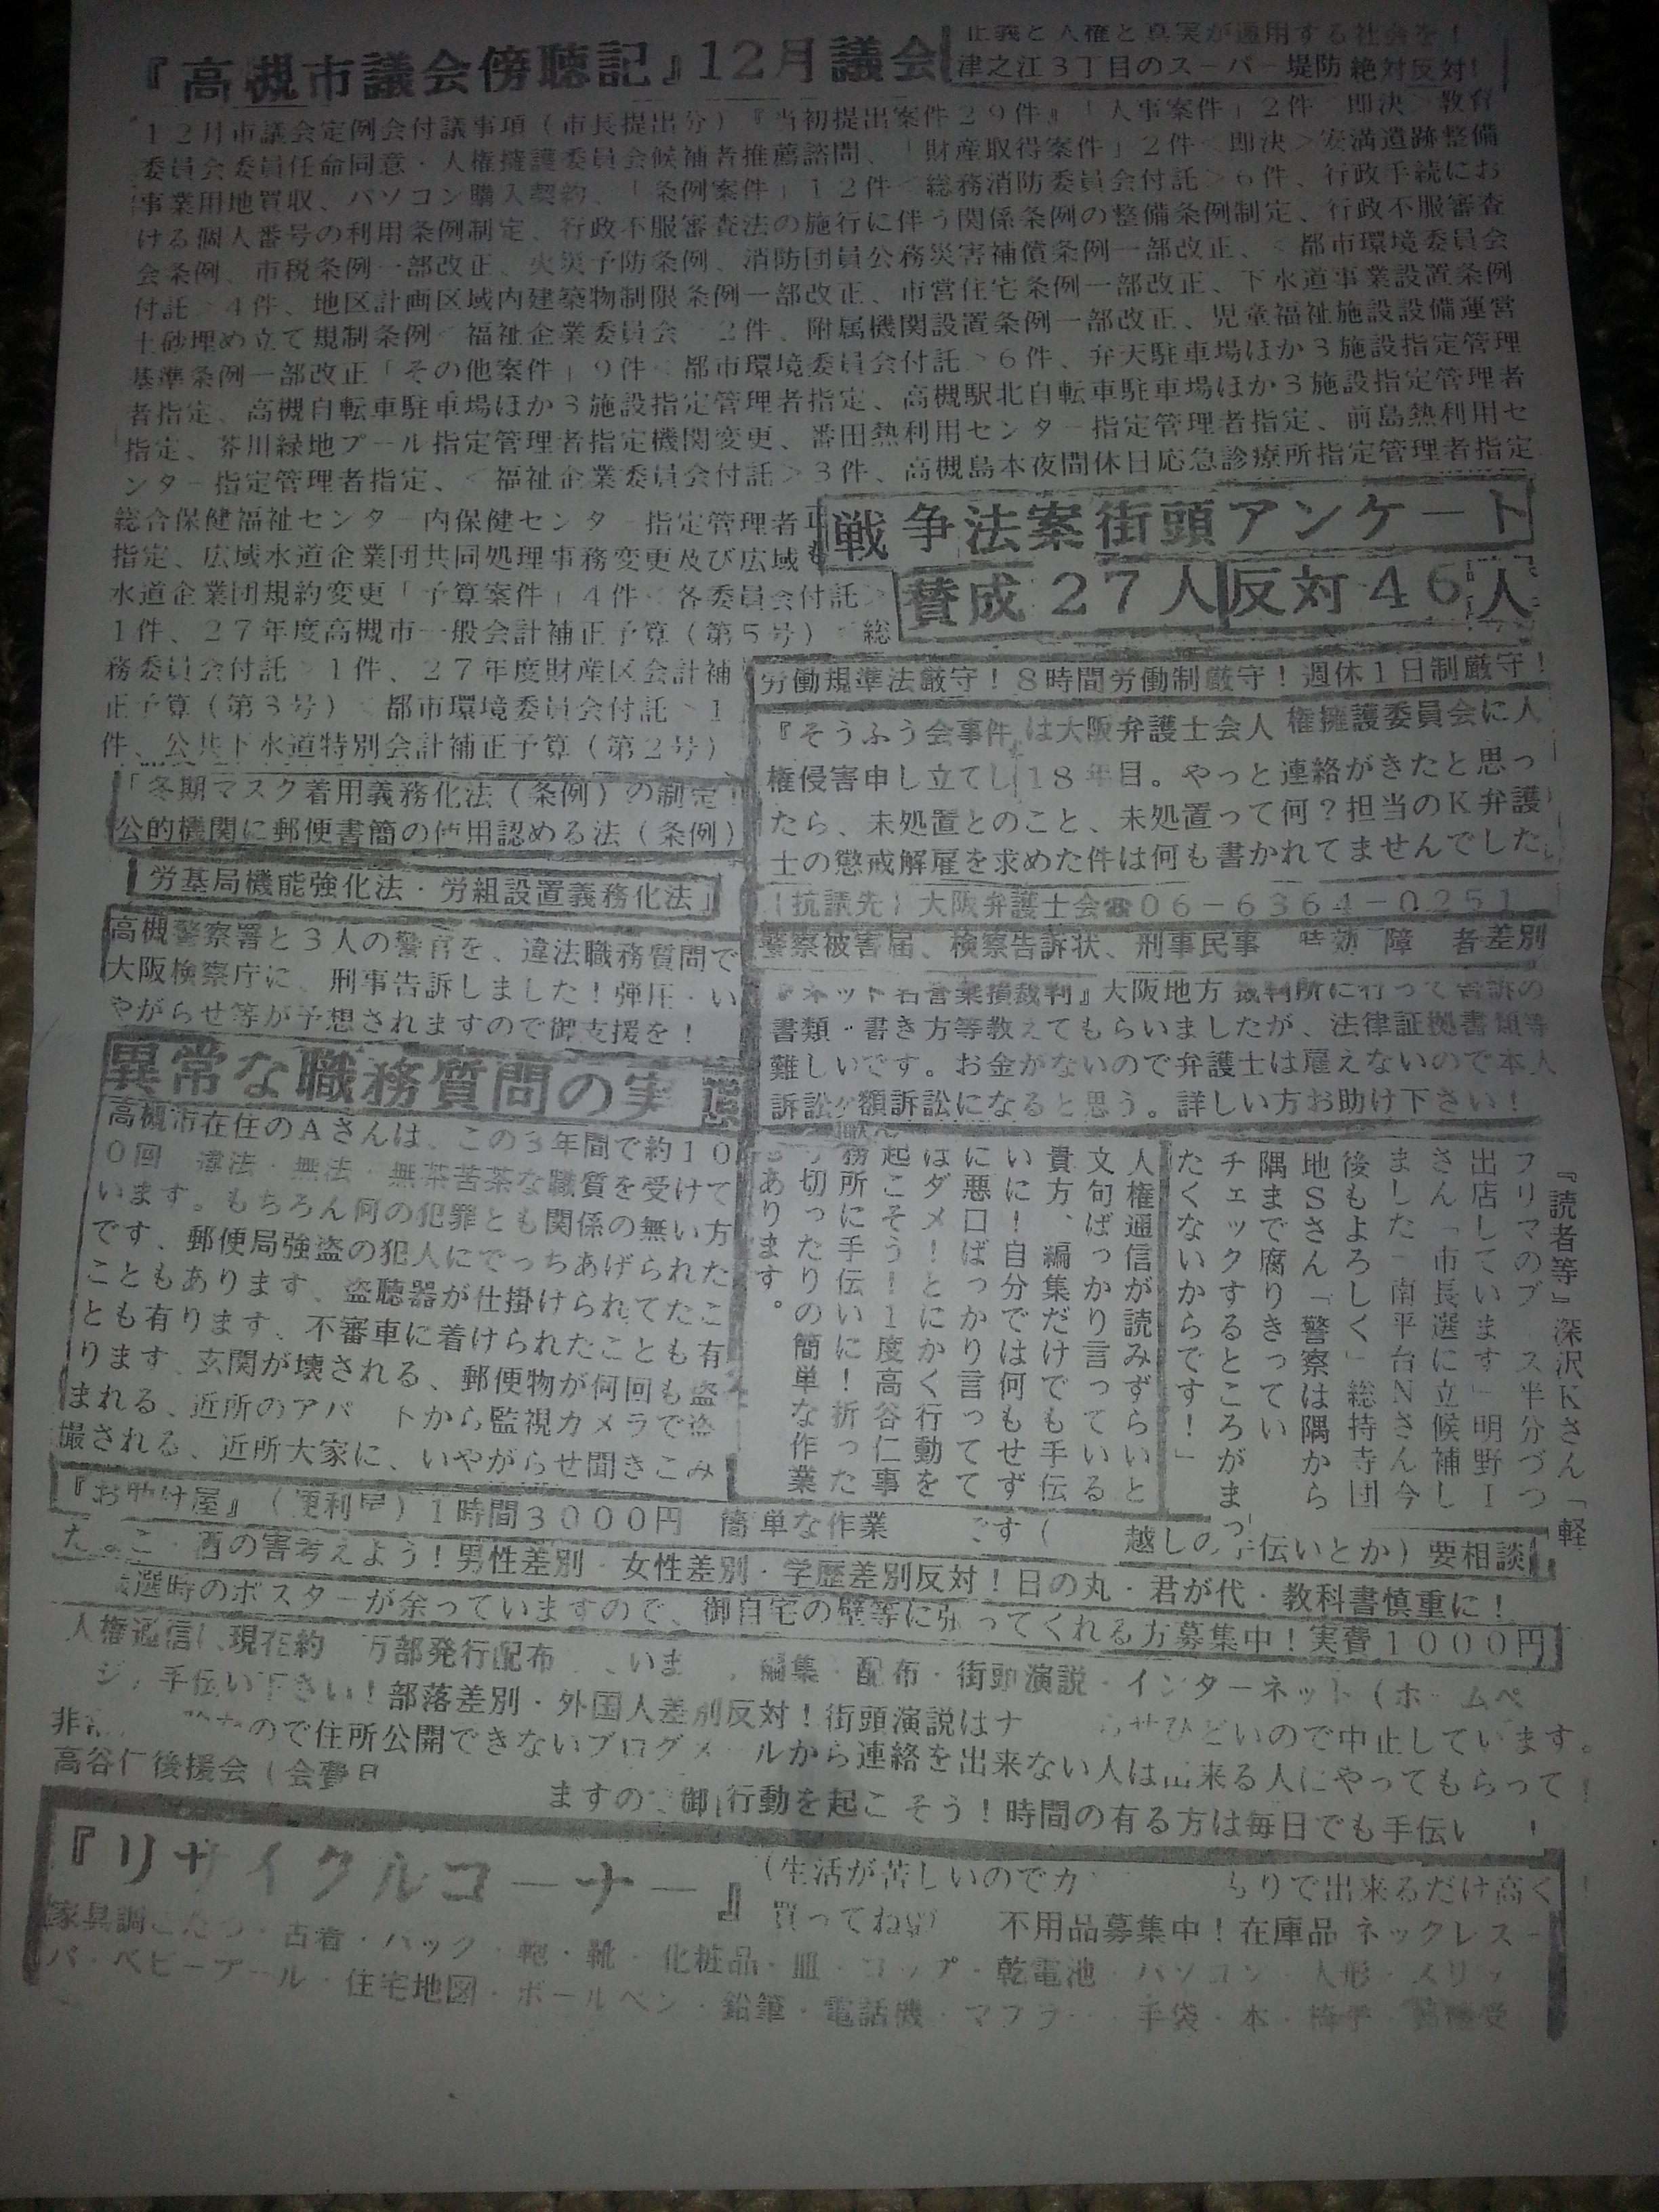 『高槻市議会傍聴記』12月議会
正義と人権と真実が通用する社会を！
津之江3丁目のスーパー堤防 絶対反対！
12月市議会定例会付議事項（市長提出分）『当初提出案件29件』「人事案件」2件＜即決＞教育
委員会委員任命同意・人権擁護委員会候補者推薦諮問、「財産取得案件」2件＜即決＞安満遺跡整備
事業用地買収、パソコン購入契約、「条例案件」12件＜総務消防委員会付託＞6件、行政手続にお
ける個人番号の利用条例制定、行政不服審査法の施行に伴う関係条例の整備条例制定、行政不服審査
会条例、市税条例一部改正、火災予防条例、消防団員公務災害補償条例一部改正、＜都市環境委員会
付託＞4件、地区計画区域内建築物制限条例一部改正、市営住宅条例一部改正、下水道事業設置条例
土砂埋め立て規制条例＜福祉企業委員会 2件、附属機関設置条例一部改正、児童福祉施設設備運営
基準条例一部改正「その他案件」9件＜都市環境委員会付託＞6件、弁天駐車場ほか3施設指定管理
者指定、高槻自転車駐車場ほか3施設指定管理者指定、高槻駅北自転車駐車場ほか3施設指定管理者
指定、芥川緑地プール指定管理者指定機関変更、番田熱利用センター指定管理者指定、前島熱利用セ
ンター指定管理者指定、＜福祉企業委員会付託＞3件、高槻島本夜間休日応急診療所指定管理者指定
総合保健福祉センター内保健センター指定管理者
指定、広域水道企業団共同処理事務変更及び広域
水道企業団規約変更「予算案件」4件＜各委員会付託＞
1件、27年度高槻市一般会計補正予算（第5号）＜総
務委員会付託＞1件、27年度財産区会計補
正予算（第3号）＜都市環境委員会付託＞1
件、公共下水道特別会計補正予算（第2号）
戦争法案街頭アンケート
賛成27人 反対46人
労働規準法厳守！8時間労働制厳守！週休1日制厳守！
『そうふう会事件 は大阪弁護士会人権擁護委員会に人
権侵害申し立てし18年目。やっと連絡がきたと思っ
たら、未処置とのこと、未処置って何？担当のK弁護
士の懲戒解雇を求めた件は何も書かれてませんでした
（抗議先）大阪弁護士会☎06-6364-0251
警察被害届、検察告訴状、刑事民事 時効 障 者差別
『ネット名誉棄損裁判』大阪地方裁判所に行って告訴の
書類・書き方等教えてもらいましたが、法律証拠書類等
難しいです。お金がないので弁護士は雇えないので本人
訴訟 額訴訟になると思う。詳しい方お助け下さい！
「冬期マスク着用義務化法（条例）の制定！
公的機関に郵便書簡の使用認める法（条例）
労基局機能強化法・労組設置義務化法」
高槻警察署と3人の警官を、違法職務質問で
大阪検察庁に、刑事告訴しました！弾圧・い
やがらせ等が予想されますので御支援を！
異常な職務質問の実態
高槻市在住のAさんは、この3年間で約10
0回 違法・無法・無茶苦茶な職質を受けて
います。もちろん何の犯罪とも関係の無い方
です、郵便局強盗の犯人にでっちあげられた
こともあります、盗聴器が仕掛けられてたこ
とも有ります、不審車に着けられたことも有
ります、玄関が壊される、郵便物が何回も盗
まれる、近所のアパートから監視カメラで盗
撮される、近所大家に、いやがらせ聞きこみ
『読者等』深沢Kさん「軽
フリマのブ ス半分づつ
出店しています」明野I
さん「市長選に立候補し
ました」南平台Nさん今
後もよろしく」総持寺団
地Sさん「警察は隅から
隅まで腐りきってい
チェックするところがまっ
たくないからです！」
人権通信が読みずらいと
文句ばっかり言っている
貴方、編集だけでも手伝
いに！自分では何もせず
に悪口ばっかり言ってて
はダメ！とにかく行動を
起こそう！1度高谷仁事
務所に手伝いに！折った
り切ったりの簡単な作業
あります。
『お助け屋』（便利屋）1時間3000円 簡単な作業 です（ 越しの手伝いとか）要相談
たばこ・酒の害考えよう！男性差別・女性差別・学歴差別反対！日の丸・君が代・教科書慎重に！
選時のポスターが余っていますので、御自宅の壁等に張ってくれる方募集中！実費1000円
人権通信 現在約 万部発行配布 いま 編集・配布・街頭演説・インターネット（ホームペ
ジ 手伝い下さい！部落差別・外国人差別反対！街頭演説は らせひどいので中止しています。
非 ので住所公開できないブログメールから連絡を出来ない人は出来る人にやってもらって！
高谷仁後援会（会費 ますので 御 行動を起こそう！時間の有る方は毎日でも手伝い ！
『リサイクルコーナー』（生活が苦しいのでカ りで出来るだけ高く！
買ってね 不用品募集中！在庫品 ネックレス・
家具調こたつ・古着・バック・鞄・靴・化粧品・皿・コップ・乾電池・パソコン・人形・スリッ
パ・ベビーアール・住宅地図・ボールペン・鉛筆・電話機・マフラー・手袋・本・椅子